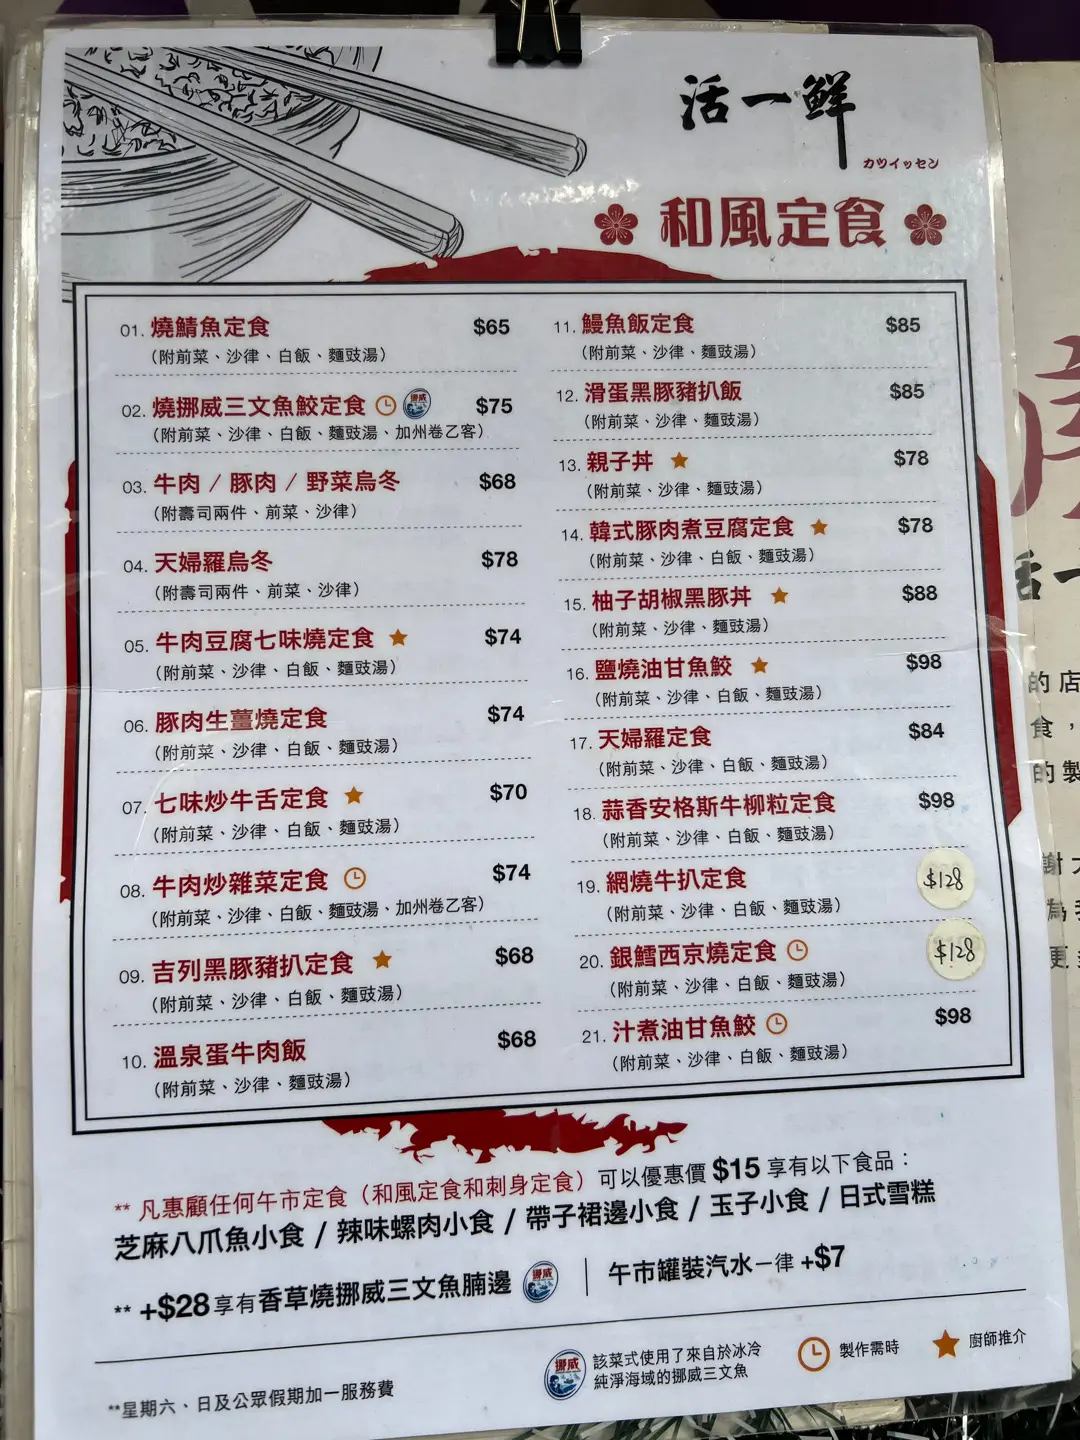 活一鮮
カツイッセン
和風定食
01. 燒鯖魚定食 $65
(附前菜、沙律、白飯、麵豉湯)
02. 燒挪威三文魚鮫定食 挪威 $75
(附前菜、沙律、白飯、麵豉湯、加州卷乙客)
03. 牛肉 / 豚肉 / 野菜烏冬 $68
(附壽司兩件、前菜、沙律)
04. 天婦羅烏冬 $78
(附壽司兩件、前菜、沙律)
05. 牛肉豆腐七味燒定食 $74
(附前菜、沙律、白飯、麵豉湯)
06. 豚肉生薑燒定食 $74
(附前菜、沙律、白飯、麵豉湯)
07. 七味炒牛舌定食 $70
(附前菜、沙律、白飯、麵豉湯)
08. 牛肉炒雜菜定食 $74
(附前菜、沙律、白飯、麵豉湯、加州卷乙客)
09. 吉列黑豚豬扒定食 $68
(附前菜、沙律、白飯、麵豉湯)
10. 溫泉蛋牛肉飯 $68
(附前菜、沙律、麵豉湯)
11. 鰻魚飯定食 $85
(附前菜、沙律、麵豉湯)
12. 滑蛋黑豚豬扒飯 $85
(附前菜、沙律、麵豉湯)
13. 親子丼 $78
(附前菜、沙律、麵豉湯)
14. 韓式豚肉煮豆腐定食 $78
(附前菜、沙律、白飯、麵豉湯)
15. 柚子胡椒黑豚丼 $88
(附前菜、沙律、麵豉湯)
16. 鹽燒油甘魚鮫 $98
(附前菜、沙律、白飯、麵豉湯)
17. 天婦羅定食 $84
(附前菜、沙律、白飯、麵豉湯)
18. 蒜香安格斯牛柳粒定食 $98
(附前菜、沙律、白飯、麵豉湯)
19. 網燒牛扒定食 $128
(附前菜、沙律、白飯、麵豉湯)
20. 銀鱈西京燒定食 $128
(附前菜、沙律、白飯、麵豉湯)
21. 汁煮油甘魚鮫 $98
(附前菜、沙律、白飯、麵豉湯)
** 凡惠顧任何午市定食（和風定食和刺身定食）可以優惠價 $15 享有以下食品：
芝麻八爪魚小食 / 辣味螺肉小食 / 帶子裙邊小食 / 玉子小食 / 日式雪糕
** +$28享有香草燒挪威三文魚腩邊 挪威 | 午市罐裝汽水一律 +$7
挪威 該菜式使用了來自於冰冷
純淨海域的挪威三文魚
製作需時
廚師推介
**星期六、日及公眾假期加一服務費
活一
的店
食，
的製
謝大
更